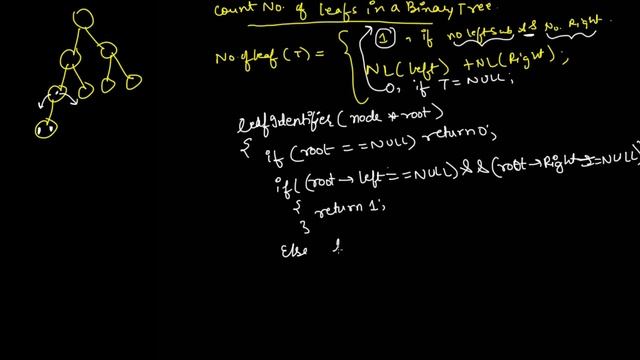 Count No. of leafs in a Binary Tree.
No. of leaf (T) = { 1, if no left sub && No. Right.
NL(left) + NL(Right);
0, if T = NULL;
leafIdentifier(node * root)
{ if (root == NULL) return 0;
if( (root → left == NULL) && (root → Right == NULL)
{
return 1;
}
Else l